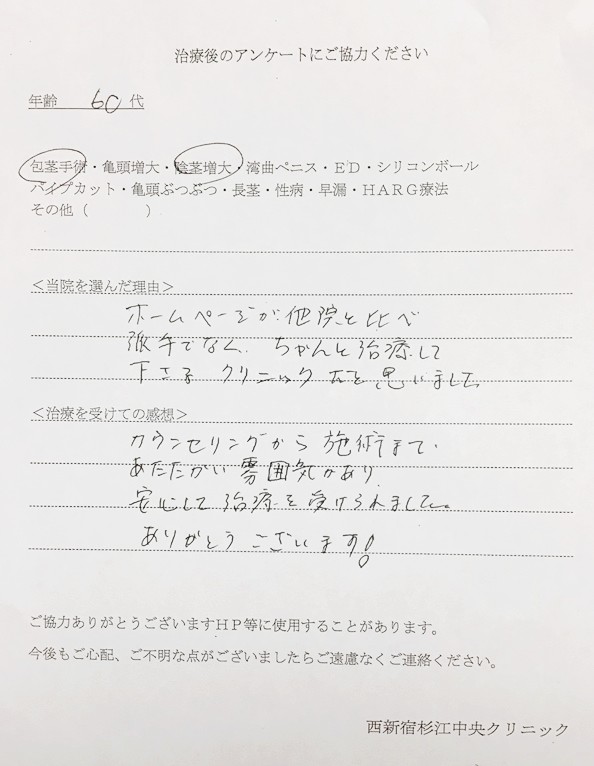 治療後のアンケートにご協力ください
年齢 60 代
包茎手術・亀頭増大・陰茎増大・湾曲ペニス・ED・シリコンボール
パイプカット・亀頭ぶつぶつ・長茎・性病・早漏・HARG療法
その他（　　　）
＜当院を選んだ理由＞
ホームページが他院と比べ
派手でなく、ちゃんと治療して
下さる クリニックだと思いました
＜治療を受けての感想＞
カウンセリングから施術まで、
あたたかい雰囲気があり
安心して治療を受けられました。
ありがとうございます!
ご協力ありがとうございますHP等に使用することがあります。
今後もご心配、ご不明な点がございましたらご遠慮なくご連絡ください。
西新宿杉江中央クリニック